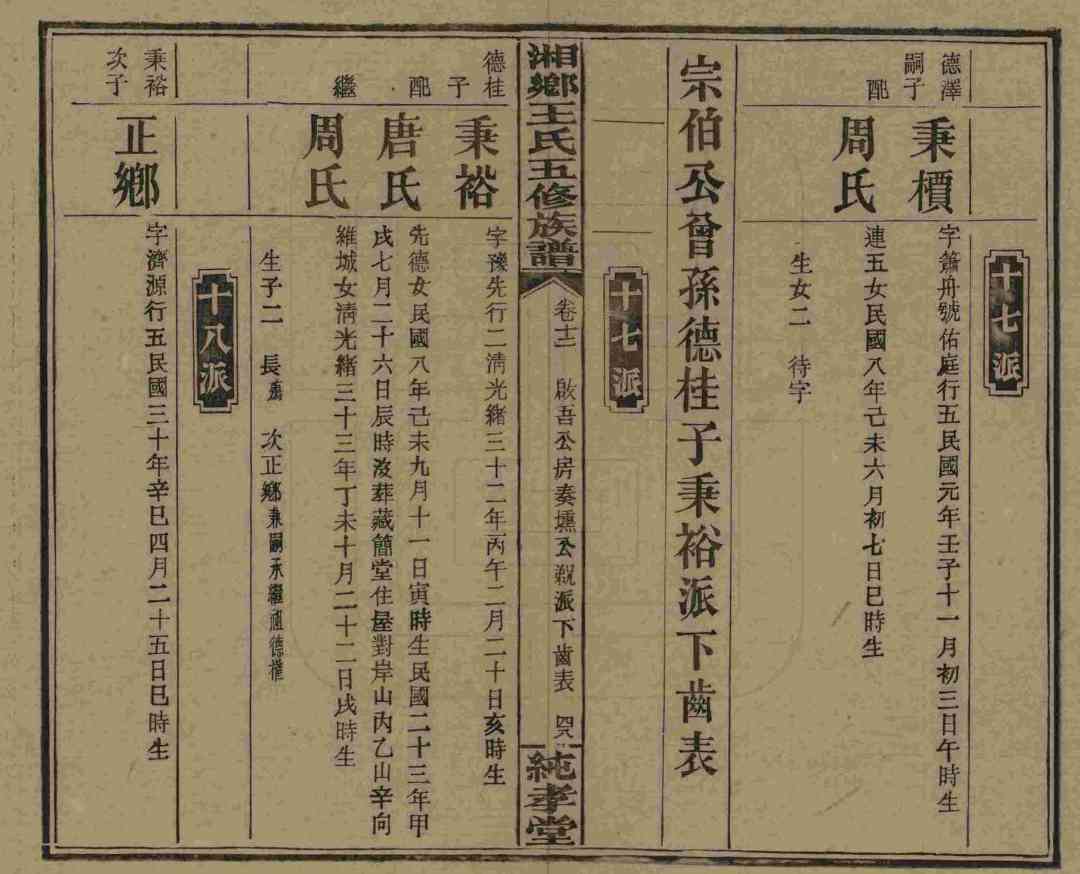 十七派
德澤
嗣子
秉檟
字簫舟號佑庭行五民國元年壬子十一月初三日午時生
配
周氏
連五女民國八年己未六月初七日巳時生
生女二 待字
宗伯公曾孫德桂子秉裕派下齒表
十七派
湘鄉王氏五修族譜
卷十二 啟吾公房奏壎公親派下齒表
純孝堂
德桂
子
秉裕
字豫先行二清光緒三十二年丙午二月二十日亥時生
配
唐氏
先德女民國八年己未九月十一日寅時生民國二十三年甲
戌七月二十六日辰時歿葬藏簡堂住屋對岸山丙乙山辛向
繼
周氏
維城女清光緒三十三年丁未十月二十二日戌時生
生子二 長 次正鄉兼嗣承繼祖德權
十八派
秉裕
次子
正鄉
字濟源行五民國三十年辛巳四月二十五日巳時生